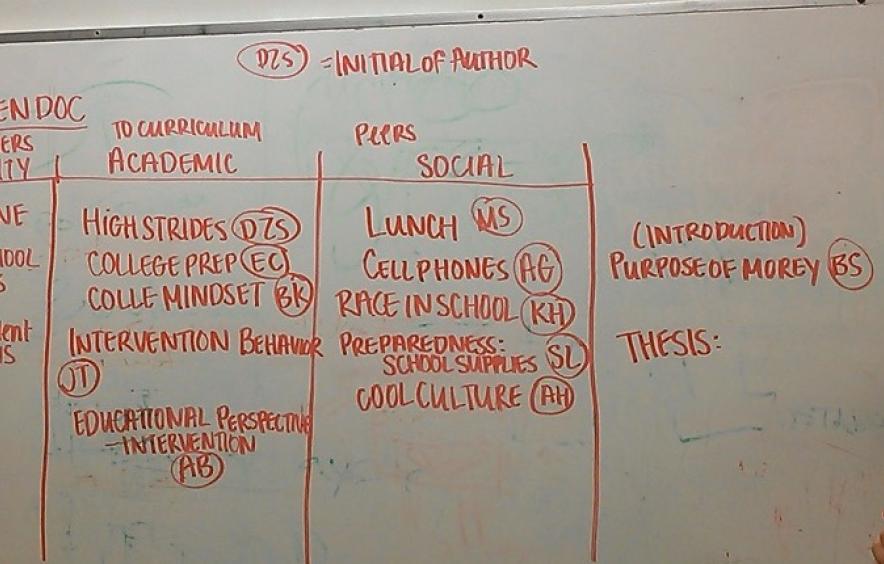 DZS = INITIAL OF AUTHOR
EN DOC
ERS
ITY
VE
OOL
S
dent
IS
TO CURRICULUM
ACADEMIC
HIGH STRIDES DZS
COLLEGE PREP EC
COLLE MINDSET BK
INTERVENTION BEHAVIOR
JT
EDUCATIONAL PERSPECTIVE
-INTERVENTION
AB
PEERS
SOCIAL
LUNCH MS
CELL PHONES AG
RACE IN SCHOOL KH
PREPAREDNESS:
SCHOOL SUPPLIES SL
COOL CULTURE AH
(INTRODUCTION)
PURPOSE OF MOREY BS
THESIS: